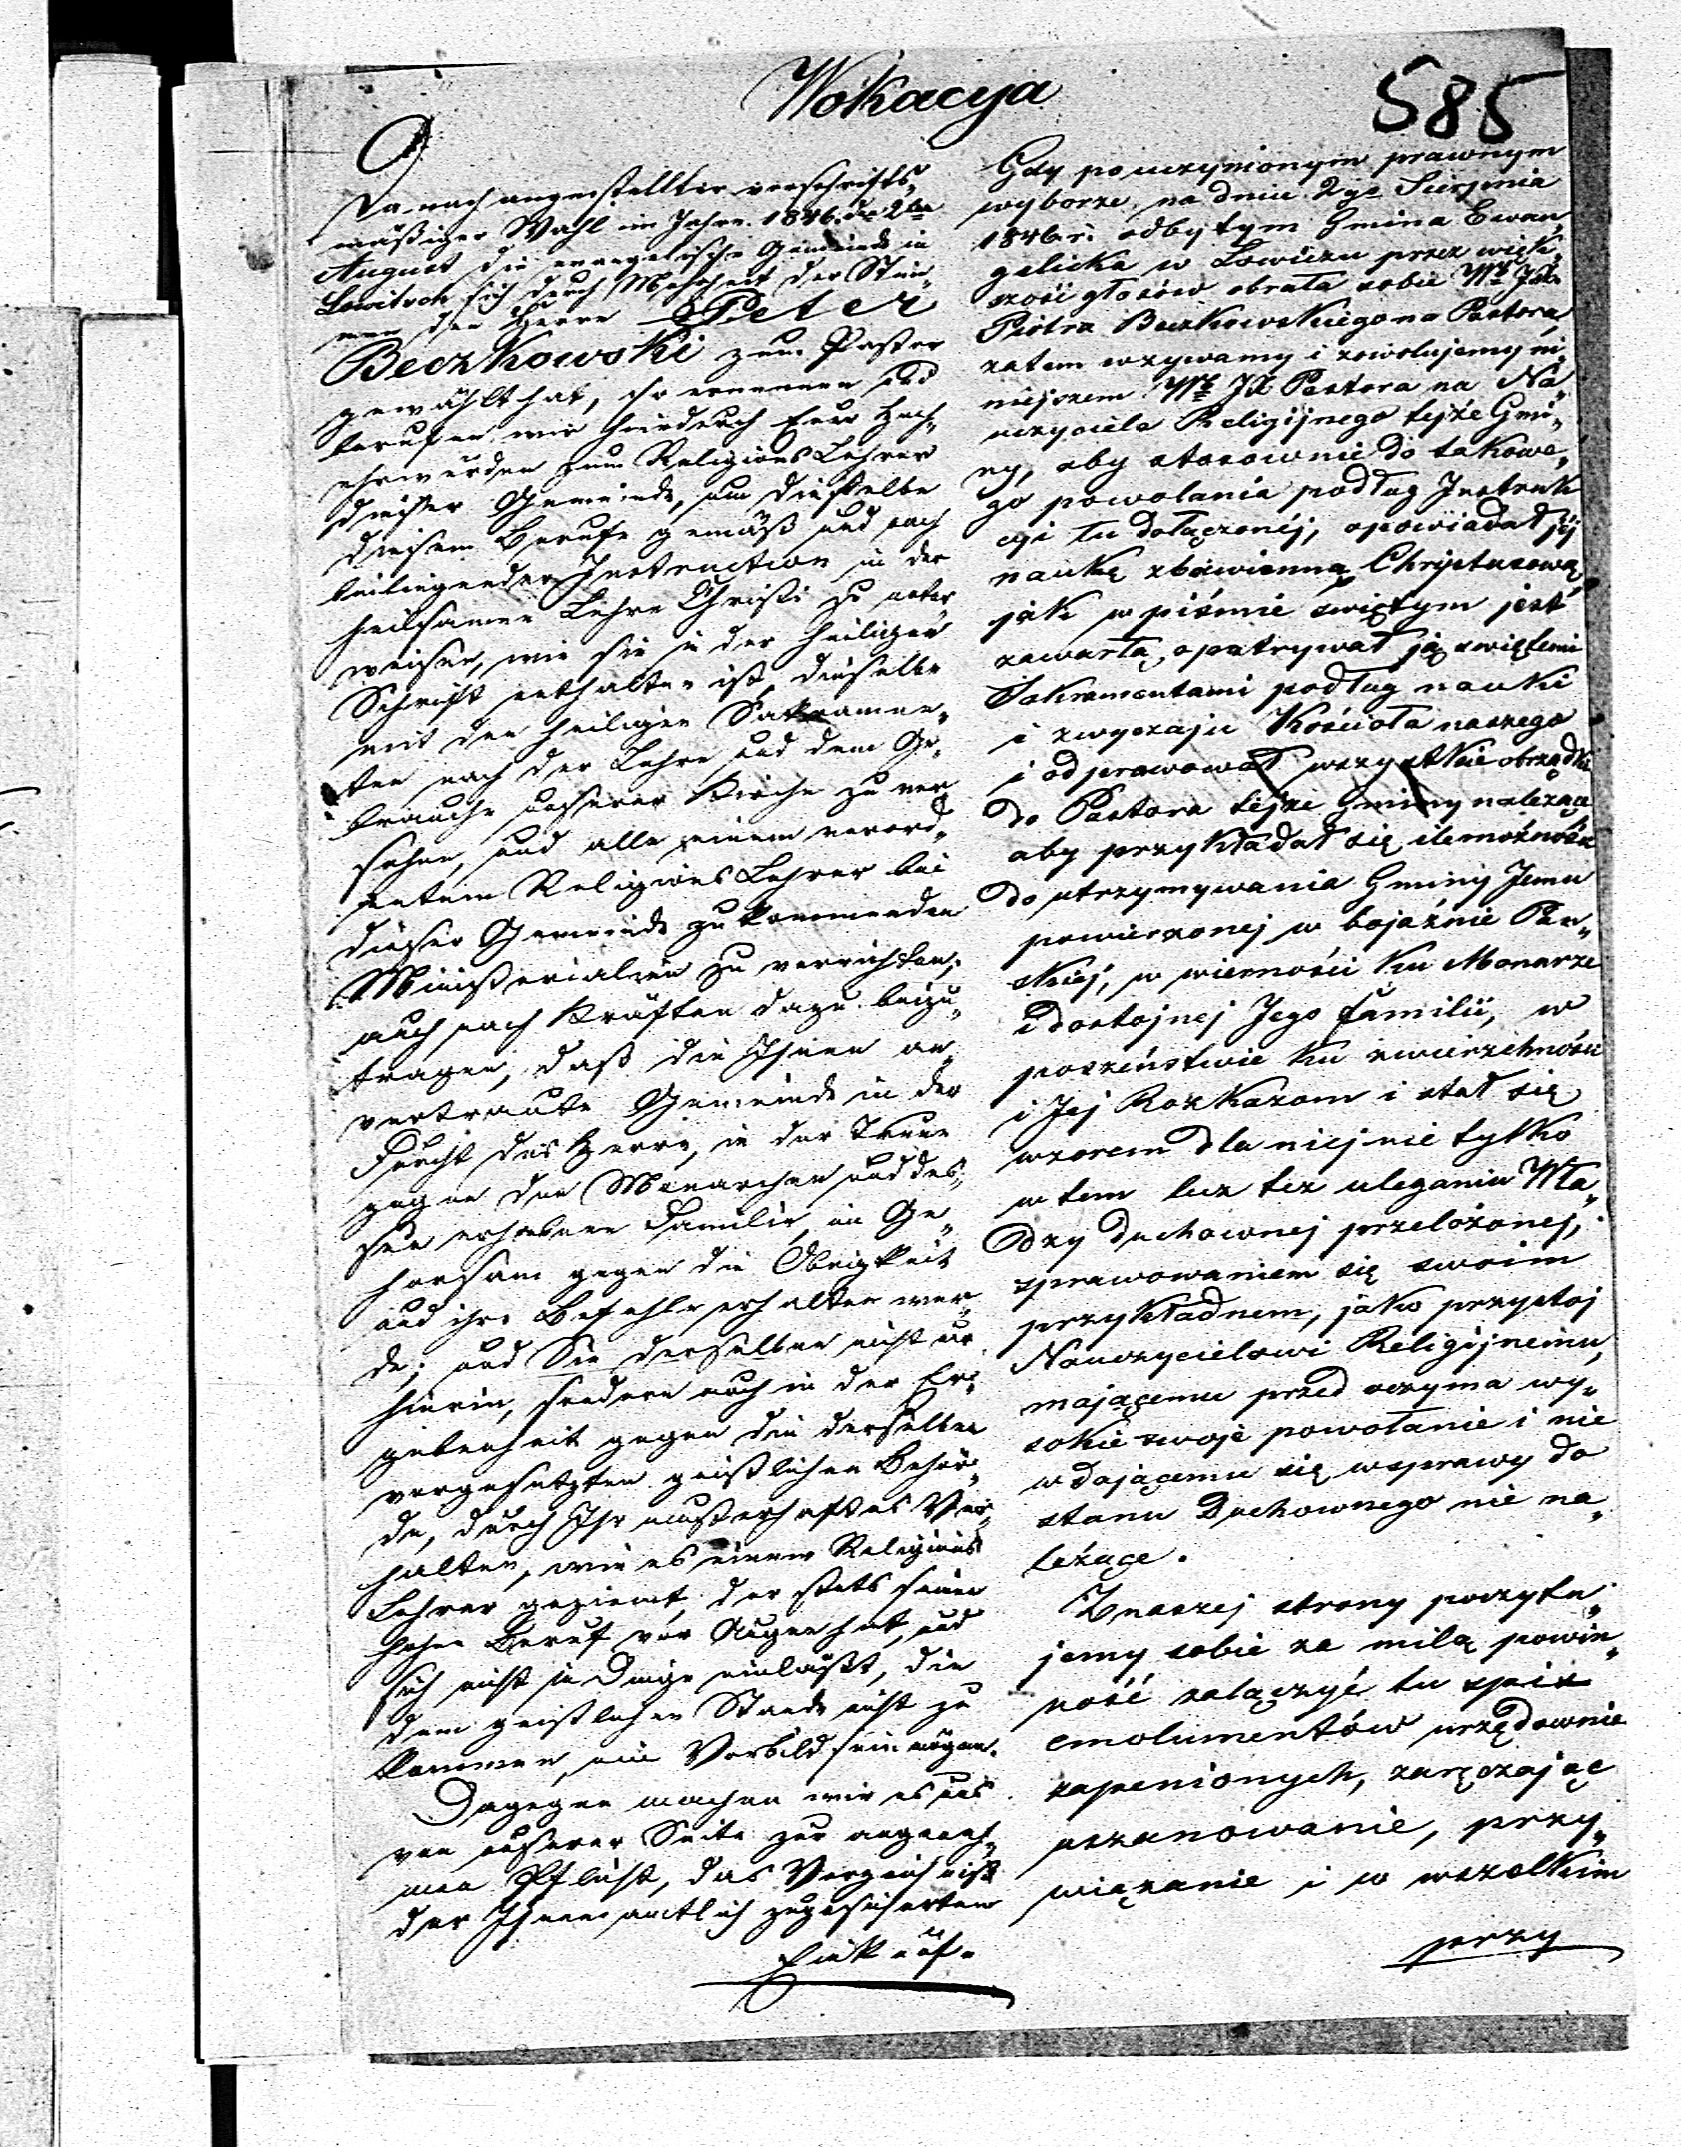 Wokacya
585
Da nach angestellter vorschrifts„
mäßiger Wahl im Jahre 1846 den 2ten
August die evangelische Gemeinde in
Lowitsch sich durch Mehrheit der Stim„
men den Herrn Peter
Beczkowski zum Pastor
gewählt hat, so ernennen und
berufen wir hierdurch Euer Hoch„
ehrwürden zum Religions Lehrer
dieser Gemeinde, um dieselbe
diesem Berufe gemäß und nach
beiliegender Instruction in der
heilsamen Lehre Christi zu unter„
weisen, wie sie in der heiligen
Schrift enthalten ist, dieselbe
mit den heiligen Sakramen„
ten nach der Lehre und dem Ge„
brauche unserer Kirche zu ver„
sehen, und alle einem verord„
neten Religions Lehrer bei
dieser Gemeinde zukommenden
Ministerialien zu verrichten;
auch nach Kräften dazu beizu„
tragen, daß die Ihnen an„
vertraute Gemeinde in der
Furcht des Herrn, in der Treue
gegen den Monarchen und des„
sen erhabene Familie, im Ge„
horsam gegen die Obrigkeit
und ihre Befehle erhalten wer„
de; und Sie derselben nicht nur
hierin, sondern auch in der Er„
gebenheit gegen die derselben
vorgesetzten geistlichen Behör„
de, durch Ihr musterhaftes Ver„
halten, wie es einem Religions
Lehrer geziemt, der stets seinen
hohen Beruf vor Augen hat, und
sich nicht in Dinge einläßt, die
dem geistlichen Stande nicht zu
kommen, ein Vorbild sein mögen.
Dagegen machen wir es uns
von unserer Seite zur angeneh„
men Pflicht, das Verzeichniß
der Ihnen amtlich zugesicherten
Einkünf„
Gdy po uczynionym prawnym
wyborze, na dniu 2go Sierpnia
1846 r. odbytym Gmina Ewan„
gelicka w Łowiczu przez więk„
szość głosów obrała sobie
Piotra Beczkowskiego na Pastora,
zatem wzywamy i zowołujemy ni„
niejszem Pastora na Na„
uczyciela Religijnego tejże Gmi„
ny, aby stosownie do takowe„
go powołania podług Instruk
cyi tu dołączonéj, opowiadał jéj
naukę zbawienną Chrystusową
jak w piśmie świętym jest
zawarta, opatrywał ją świętemi
Sakramentami podług nauki
i zwyczaju Kościoła naszego
i odprawował wszystkie obrządki
do Pastora tejże Gminy należące
aby przykładał się ilemożności
do utrzymywania Gminy Jemu
powierzonej w bojaźnie Pan„
skiéj, w wierności ku Monarze
i dostojnej Jego familii, w
poszeństwie ku zwierzchności
i Jej Rozkazom i stał się
wzorem dla niej nie tylko
w tem lecz tez uleganiu Wła„
dzy duchownej przełożonej,
sprawowaniem się swoim
przykładnem, jako przystoj
Nauczycielowi Religijnemu,
mającemu przed oczyma wy„
sokie swoje powołanie i nie
wdającemu się wsprawy do
stanu Duchownego nie na„
leżące.
Znaszej strony poczytu„
jemy sobie za miłą powin„
ność załączyć tu spis
emolumentów urzędownie
zapenionych, zaręczając
uszanowanie, przy„
wiązanie i w wszelkim
przy